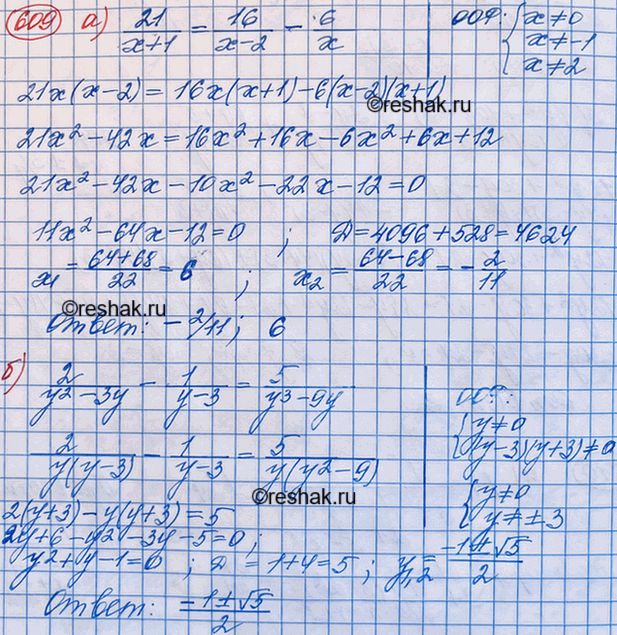 609 а) 21/(x+1) = 16/(x-2) - 6/x ООФ: { x≠0 x≠-1 x≠2
21x(x-2) = 16x(x+1) - 6(x-2)(x+1)
©reshak.ru
21x² - 42x = 16x² + 16x - 6x² + 6x + 12
21x² - 42x - 10x² - 22x - 12 = 0
11x² - 64x - 12 = 0 ; D = 4096 + 528 = 4624
x₁ = (64+68)/22 = 6 ; x₂ = (64-68)/22 = -2/11
©reshak.ru
Ответ: -2/11; 6
б) 2/(y²-3y) - 1/(y-3) = 5/(y³-9y) ООФ: { y≠0 (y-3)(y+3)≠0
2/(y(y-3)) - 1/(y-3) = 5/(y(y²-9)) { y≠0 y≠±3
©reshak.ru
2(y+3) - y(y+3) = 5
2y+6-y²-3y-5=0;
y²+y-1=0 ; D = 1+4=5 ; y₁,₂ = (-1±√5)/2
Ответ: (-1±√5)/2